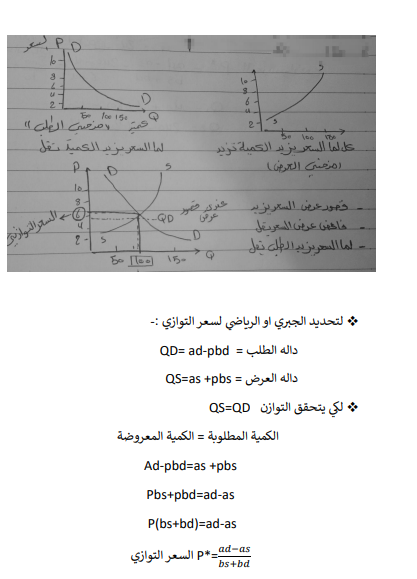 السعر P D
10
8
6
4
2
50 100 150 Q
D
كمية (منحنى الطلب)
لما السعر يزيد الكمية تقل
S
10
8
6
4
2
50 100 150
كل ما السعر يزيد الكمية تزيد
(منحنى العرض)
P
D S
10
8
6
4
2
السعر التوازني
QD
S D
50 100 150 Q
- قصور عرض السعر يزيد
- فائض عرض السعر يقل
- لما السعر يزيد الطلب يقل
❖ لتحديد الجبري او الرياضي لسعر التوازي :-
داله الطلب = QD= ad-pbd
داله العرض = QS=as +pbs
❖ لكي يتحقق التوازن QS=QD
الكمية المطلوبة = الكمية المعروضة
Ad-pbd=as +pbs
Pbs+pbd=ad-as
P(bs+bd)=ad-as
P*=\frac{ad-as}{bs+bd} السعر التوازي